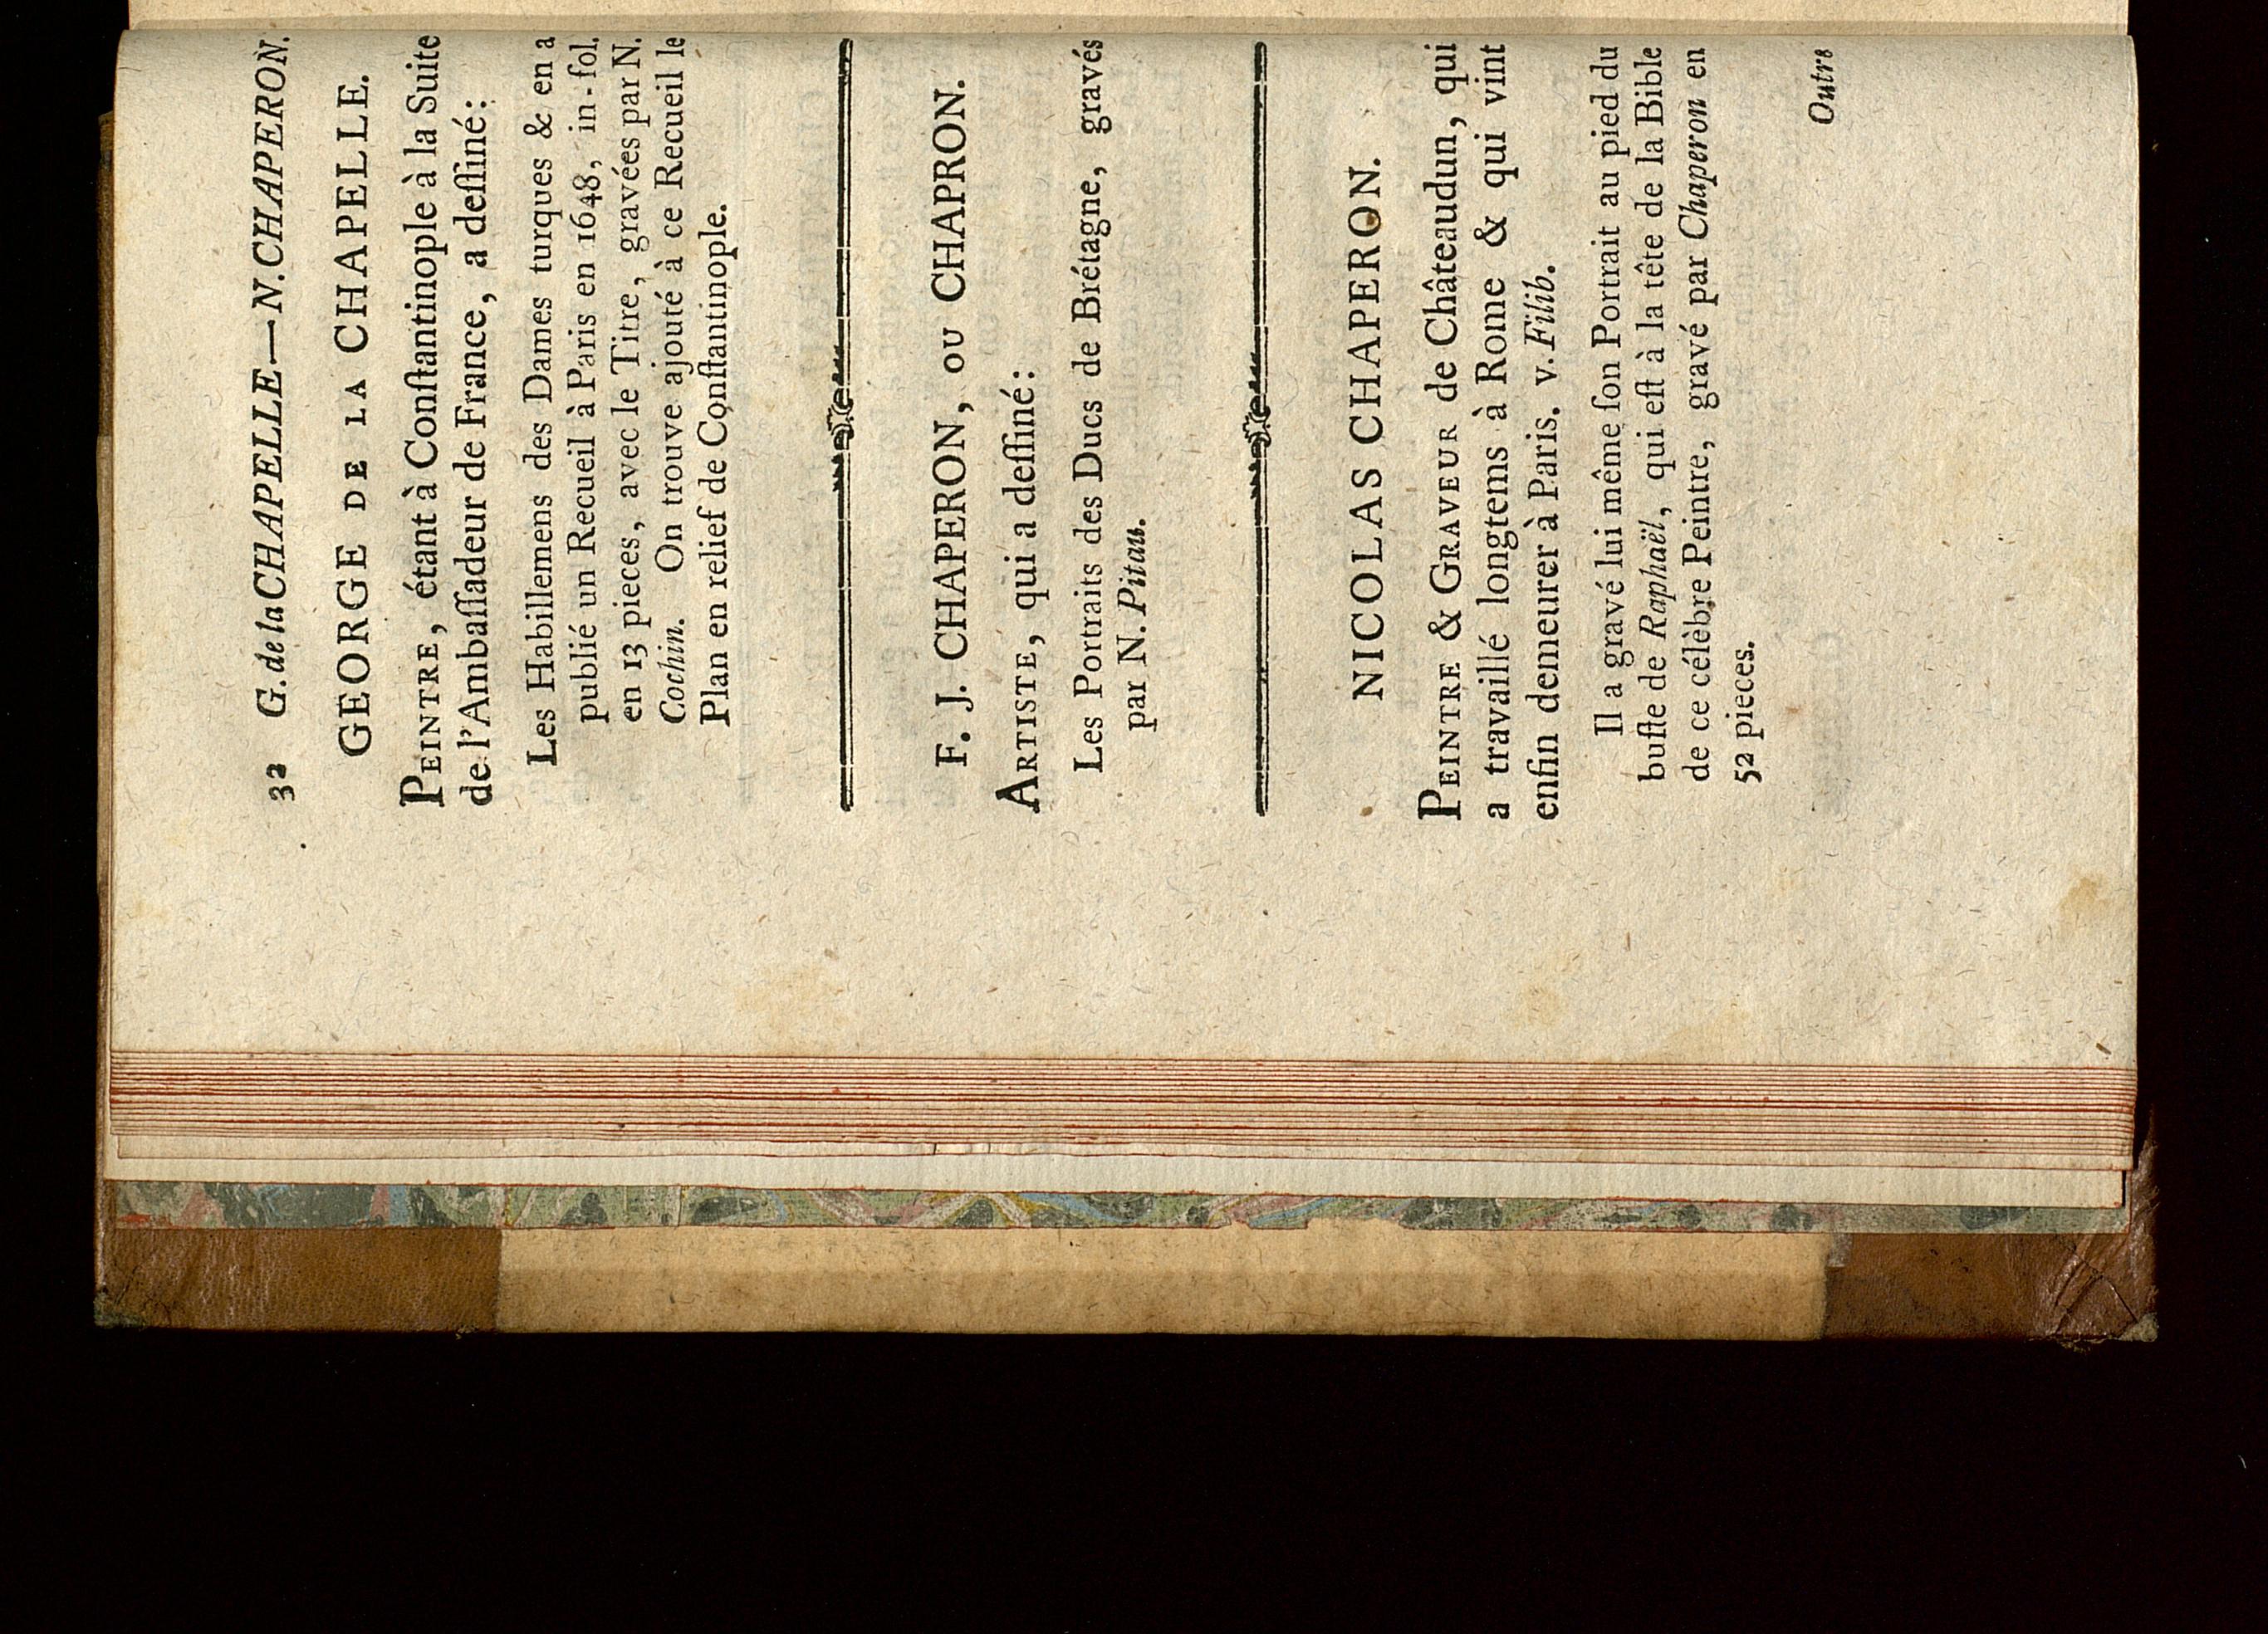 32 G. de la CHAPELLE—N. CHAPERON.
GEORGE DE LA CHAPELLE.
PEINTRE, étant à Conſtantinople à la Suite
de l'Ambaſſadeur de France, a deſſiné:
Les Habillemens des Dames turques & en a
publié un Recueil à Paris en 1648, in-fol.
en 13 pieces, avec le Titre, gravées par N.
Cochin. On trouve ajouté à ce Recueil le
Plan en relief de Conſtantinople.
F. J. CHAPERON, OU CHAPRON.
ARTISTE, qui a deſſiné:
Les Portraits des Ducs de Brétagne, gravés
par N. Pitau.
NICOLAS CHAPERON.
PEINTRE & GRAVEUR de Châteaudun, qui
a travaillé longtems à Rome & qui vint
enfin demeurer à Paris. v. Filib.
Il a gravé lui même ſon Portrait au pied du
buſte de Raphaël, qui eſt à la tête de la Bible
de ce célèbre Peintre, gravé par Chaperon en
52 pieces.
Outre